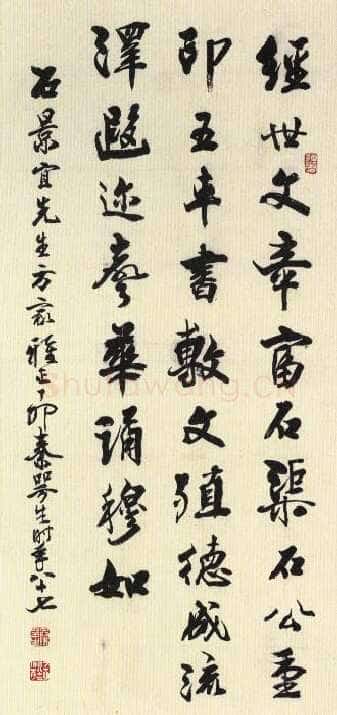 經世文章富石渠石公
印五車書敷文殖德成流
澤遐迩聲華誦穆如
石景宜先生方家雅正丁卯秦咢生时年八十七